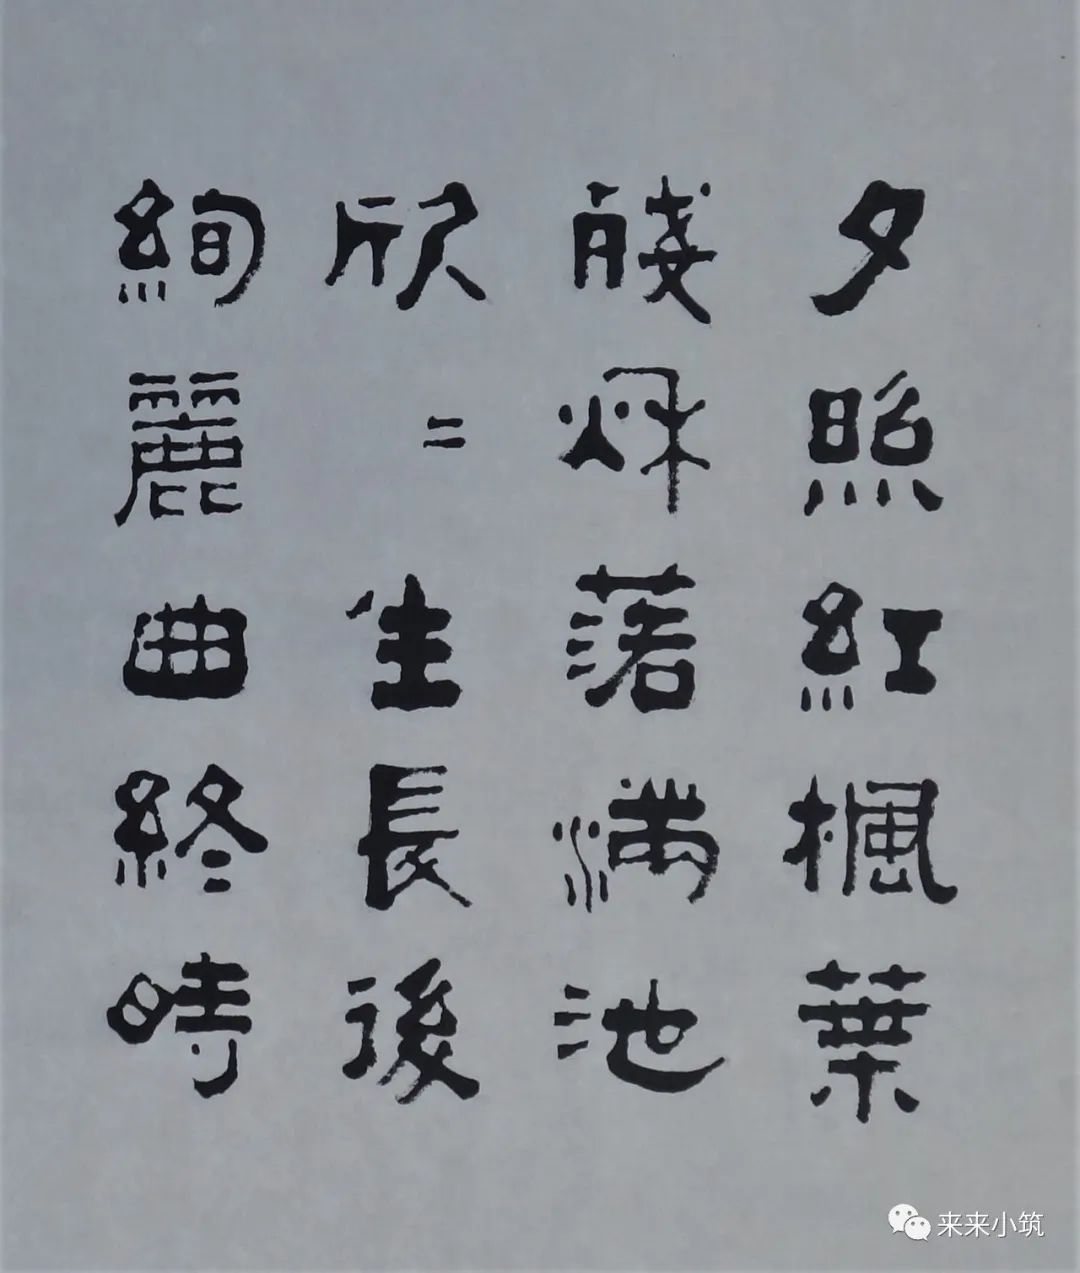 夕照紅楓葉
殘秌落滿池
欣〻生長後
絢麗曲終時
来来小筑